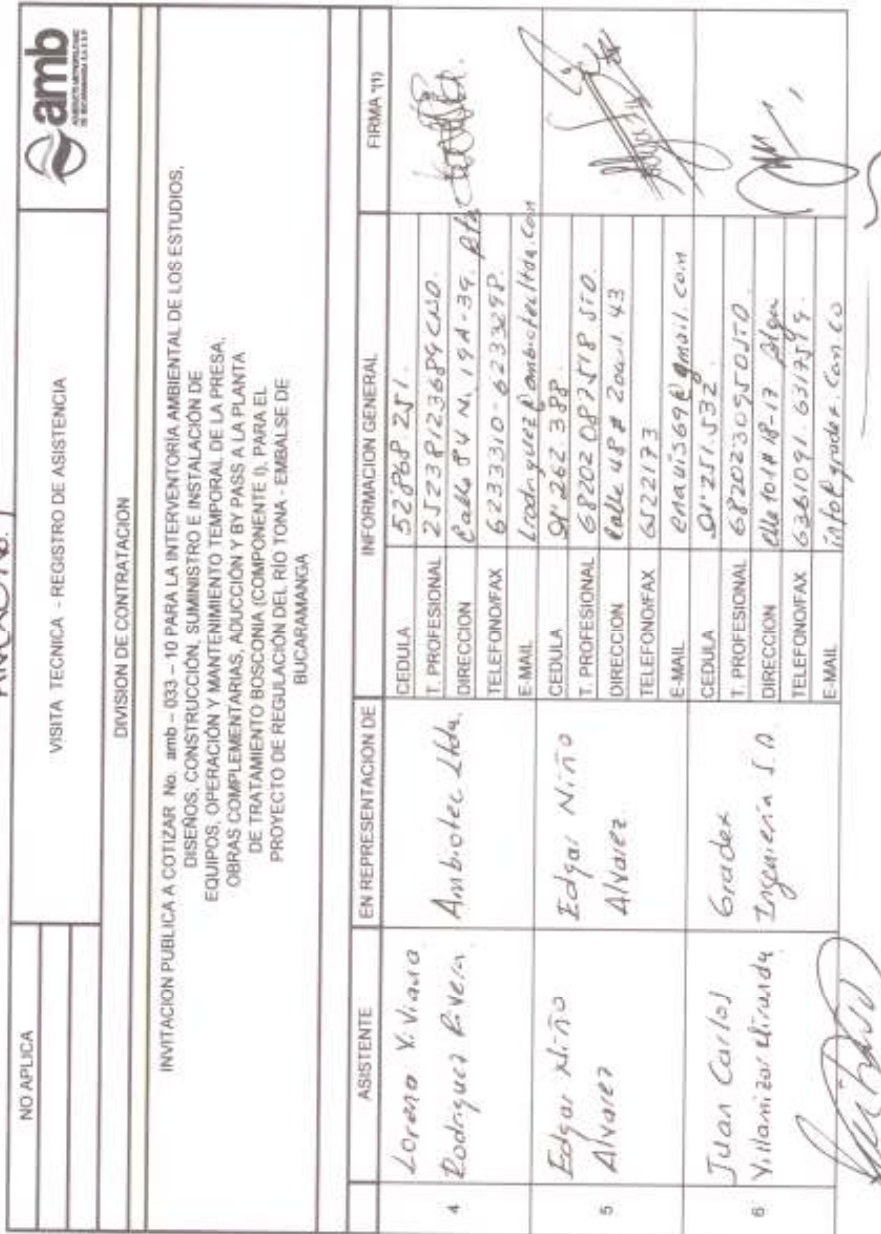 ANEXO No. 1
NO APLICA
VISITA TECNICA - REGISTRO DE ASISTENCIA
amb
ACUEDUCTO METROPOLITANO
DE BUCARAMANGA S.A. E.S.P.
DIVISION DE CONTRATACION
INVITACION PUBLICA A COTIZAR No. amb – 033 – 10 PARA LA INTERVENTORÍA AMBIENTAL DE LOS ESTUDIOS,
DISEÑOS, CONSTRUCCIÓN, SUMINISTRO E INSTALACIÓN DE
EQUIPOS, OPERACIÓN Y MANTENIMIENTO TEMPORAL DE LA PRESA,
OBRAS COMPLEMENTARIAS, ADUCCIÓN Y BY PASS A LA PLANTA
DE TRATAMIENTO BOSCONIA (COMPONENTE I), PARA EL
PROYECTO DE REGULACIÓN DEL RÍO TONA - EMBALSE DE
BUCARAMANGA
ASISTENTE
EN REPRESENTACION DE
INFORMACION GENERAL
FIRMA *(1)
4
Lorena Viviana
Rodriguez Rivera
Ambiotec Ltda.
CEDULA 52'868 251.
T. PROFESIONAL 25238123689 CND.
DIRECCION Calle 84 N. 19A-39. Bta
TELEFONO/FAX 6233310-6233298.
E-MAIL lrodriguez@ambiotecltda.com
5
Edgar Niño
Alvarez
Edgar Niño
Alvarez
CEDULA 91'262 388
T. PROFESIONAL 68202 087518 STD.
DIRECCION Calle 48 #
TELEFONO/FAX 6522173
E-MAIL enavis69@gmail.com
6
Juan Carlos
Villamizar Miranda
Gradex
Ingenieria S.A.
CEDULA 91'251.532
T. PROFESIONAL 6820230950STD
DIRECCION # 18-17
TELEFONO/FAX 6361091. 6317519.
E-MAIL info@gradex.com.co